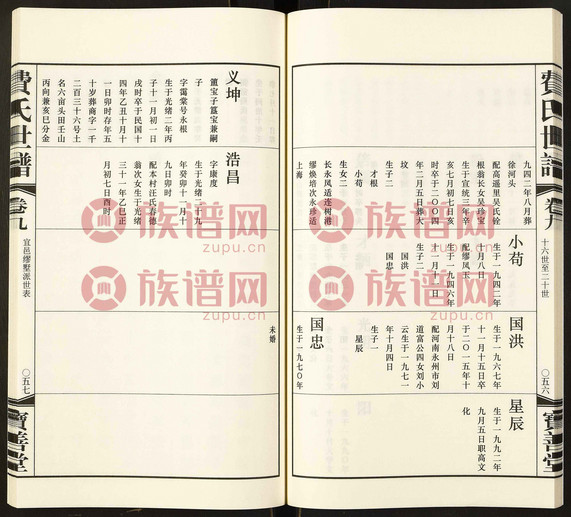 費氏世譜
卷九
十六世至二十世
〇五六
寶善堂
九四二年八月葬
徐河头
配高遥里吴氏铨
根翁长女吴珍宝
生于宣统三年辛
亥七月初七日亥
时卒于二〇〇四
年二月五日葬大
坟
生子二
才根
小苟
生女二
长永凤适连树港
缪焕培次永珍适
上海
小苟
生于一九四二年
十月八日
配缪凤玉
生于一九四六年
十一月十一日
生子二
国洪
国忠
国洪
生于一九六七年
十一月十五日卒
于二〇一五年十
月十八日
配河南永州市刘
道富公四女刘小
云生于一九七一
年十月四日
生子一
星辰
国忠
生于一九七〇年
星辰
生于一九九二年
九月五日职高文
化
未婚
义坤
蓝宝子簋宝兼嗣
子
字霭棠号永根
生于光绪二年丙
子十一月初一日
戌时卒于民国十
四年乙丑十月十
一日卯时存年五
十岁葬商字一千
二百三十六号土
名六亩头田壬山
丙向兼亥巳分金
浩昌
字康度
生于光绪二十九
年癸卯十一月十
九日卯时
配本村汪氏春德
翁次女生于光绪
三十一年乙巳正
月初七日酉时
費氏世譜
卷九
宜邑缪墅派世表
〇五七
寶善堂
族谱网
zupu.cn
族谱网
zupu.cn
族谱网
zupu.cn
族谱网
zupu.cn